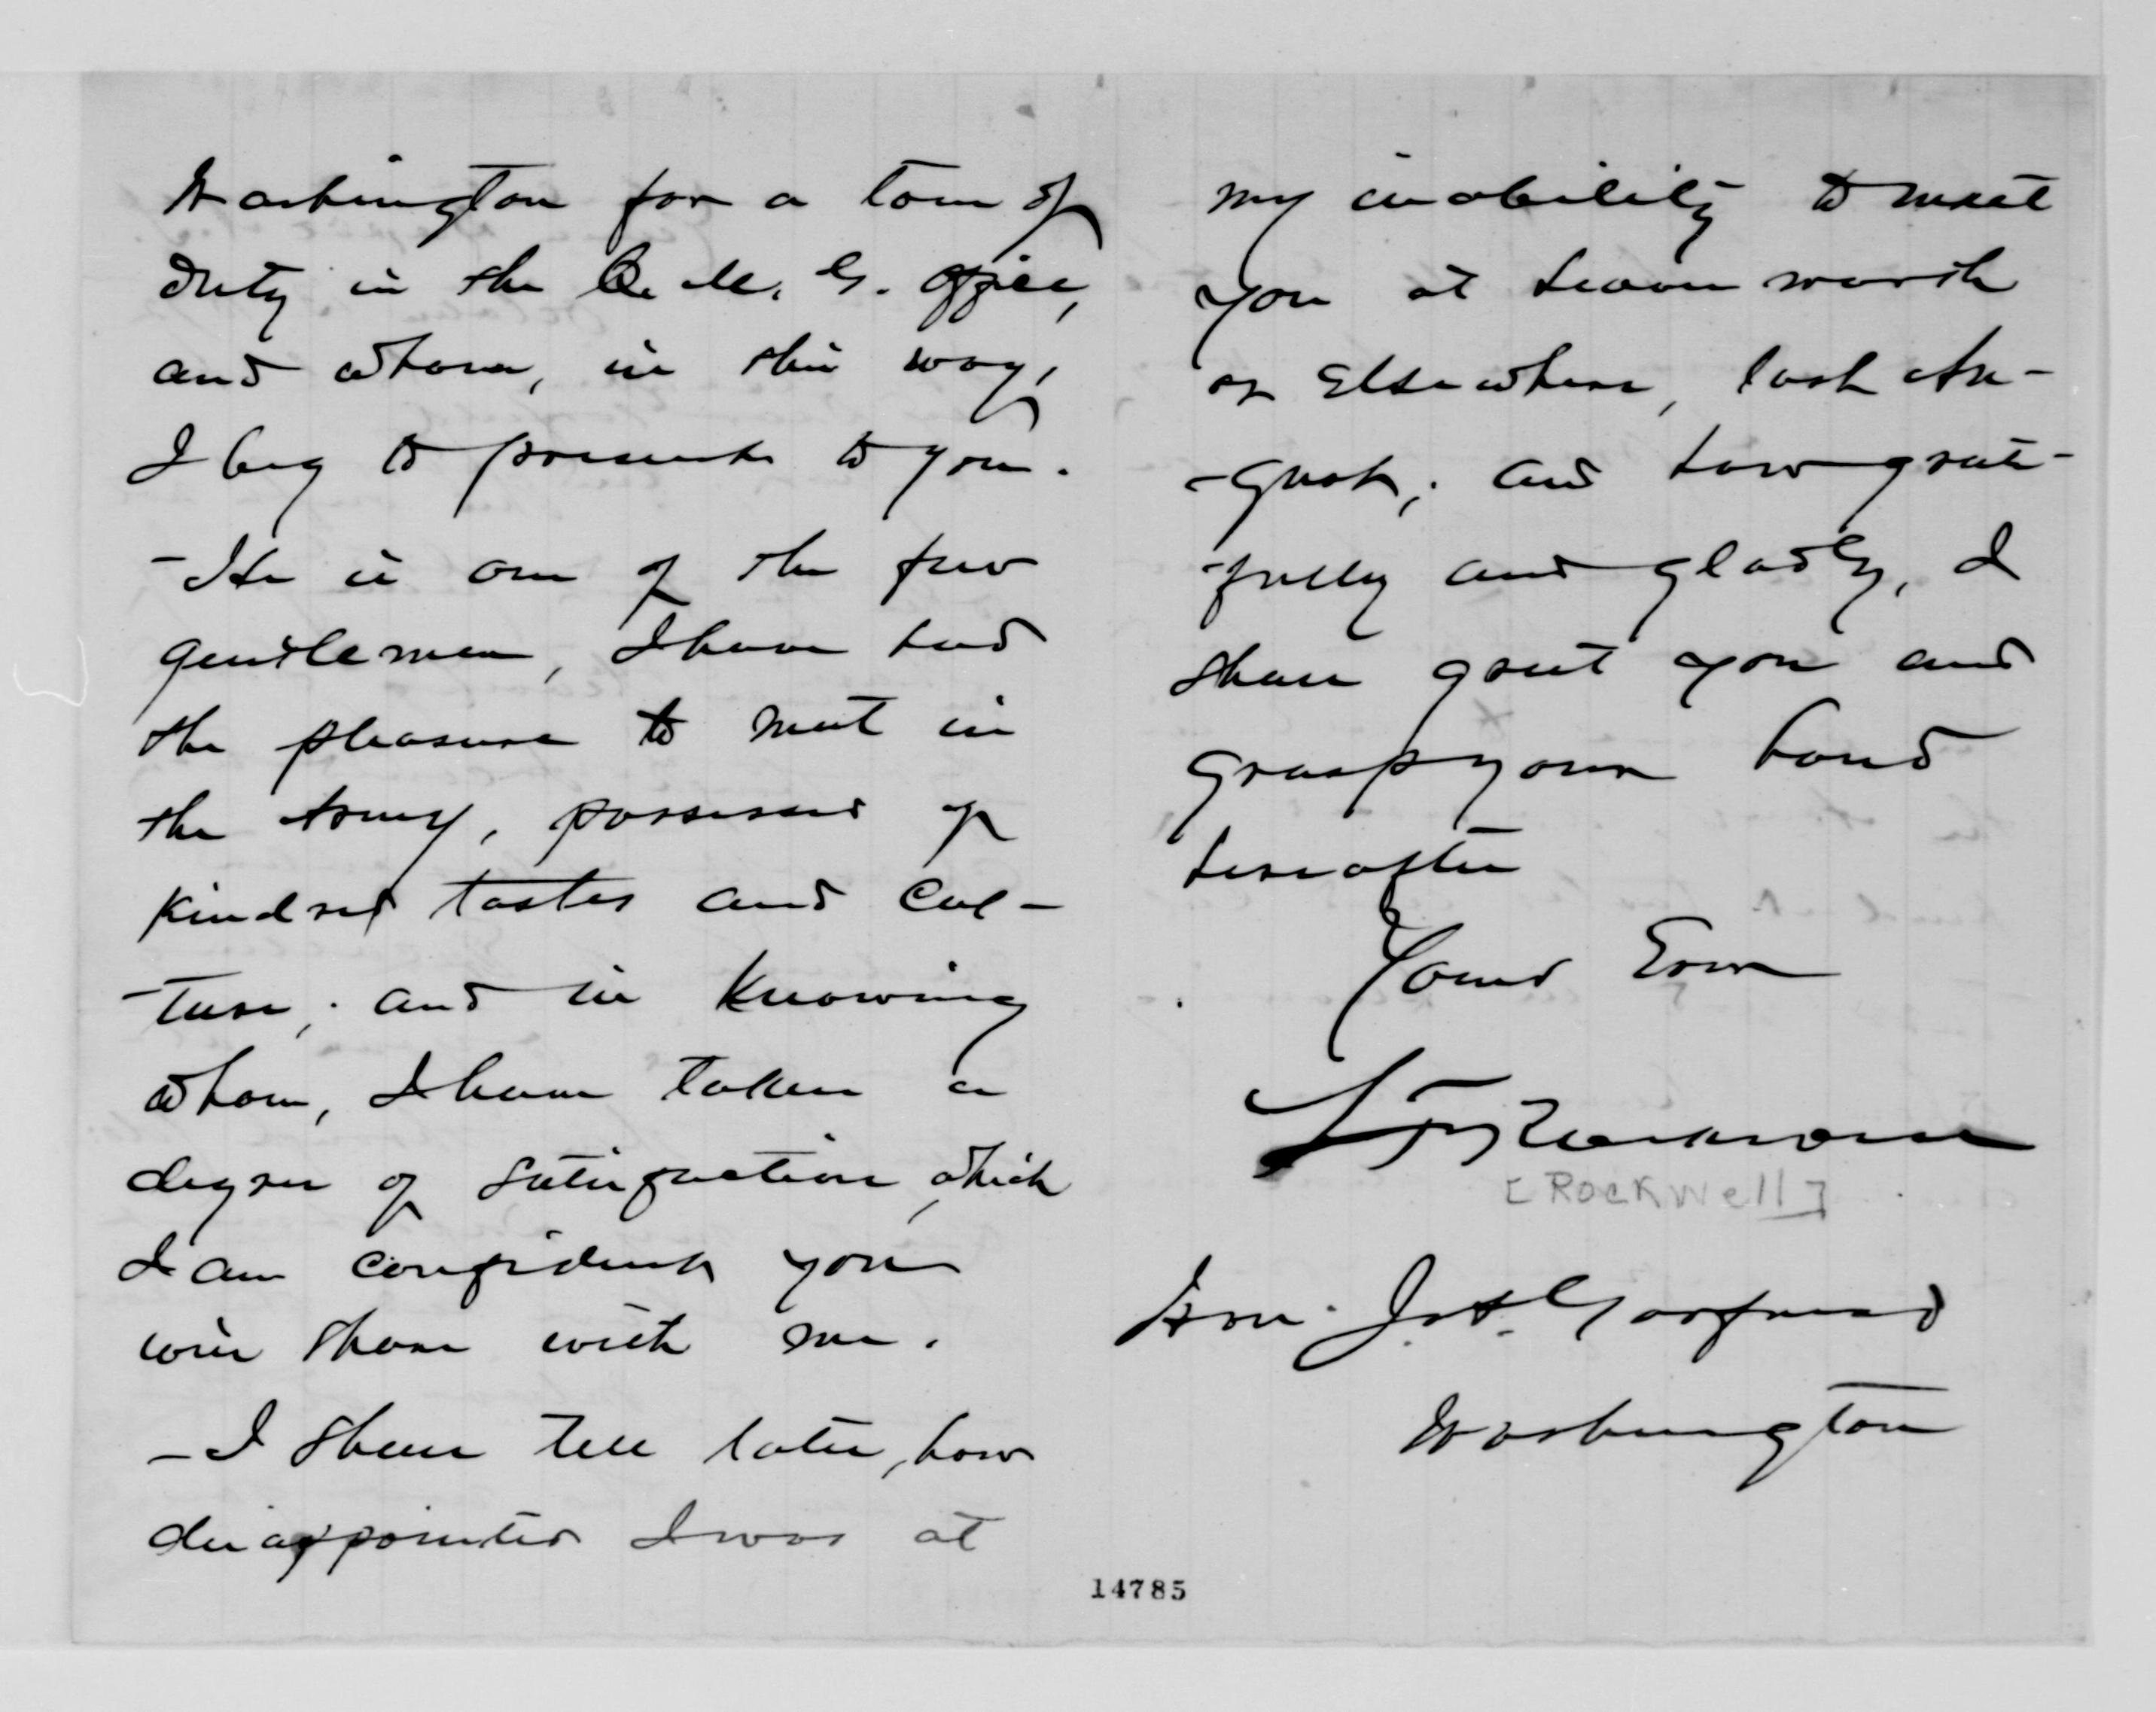 Washington for a tour of
duty in the Q. M. G. office,
and whom, in this way,
I beg to present to you.
- He is one of the few
gentlemen, I have had
the pleasure to meet in
the Army, possessed of
kindred tastes and cul-
-ture; and in knowing
whom, I have taken a
degree of satisfaction, which
I am confident you
will share with me.
- I shall tell later, how
disappointed I was at
my inability to meet
you at Leavenworth
or Elsewhere, last Au-
-gust; and how grate-
-fully and gladly, I
shall greet you and
grasp your hand
hereafter
Yours Ever
A F Rockwell
[Rockwell]
Hon. J. A. Garfield
Washington
14785